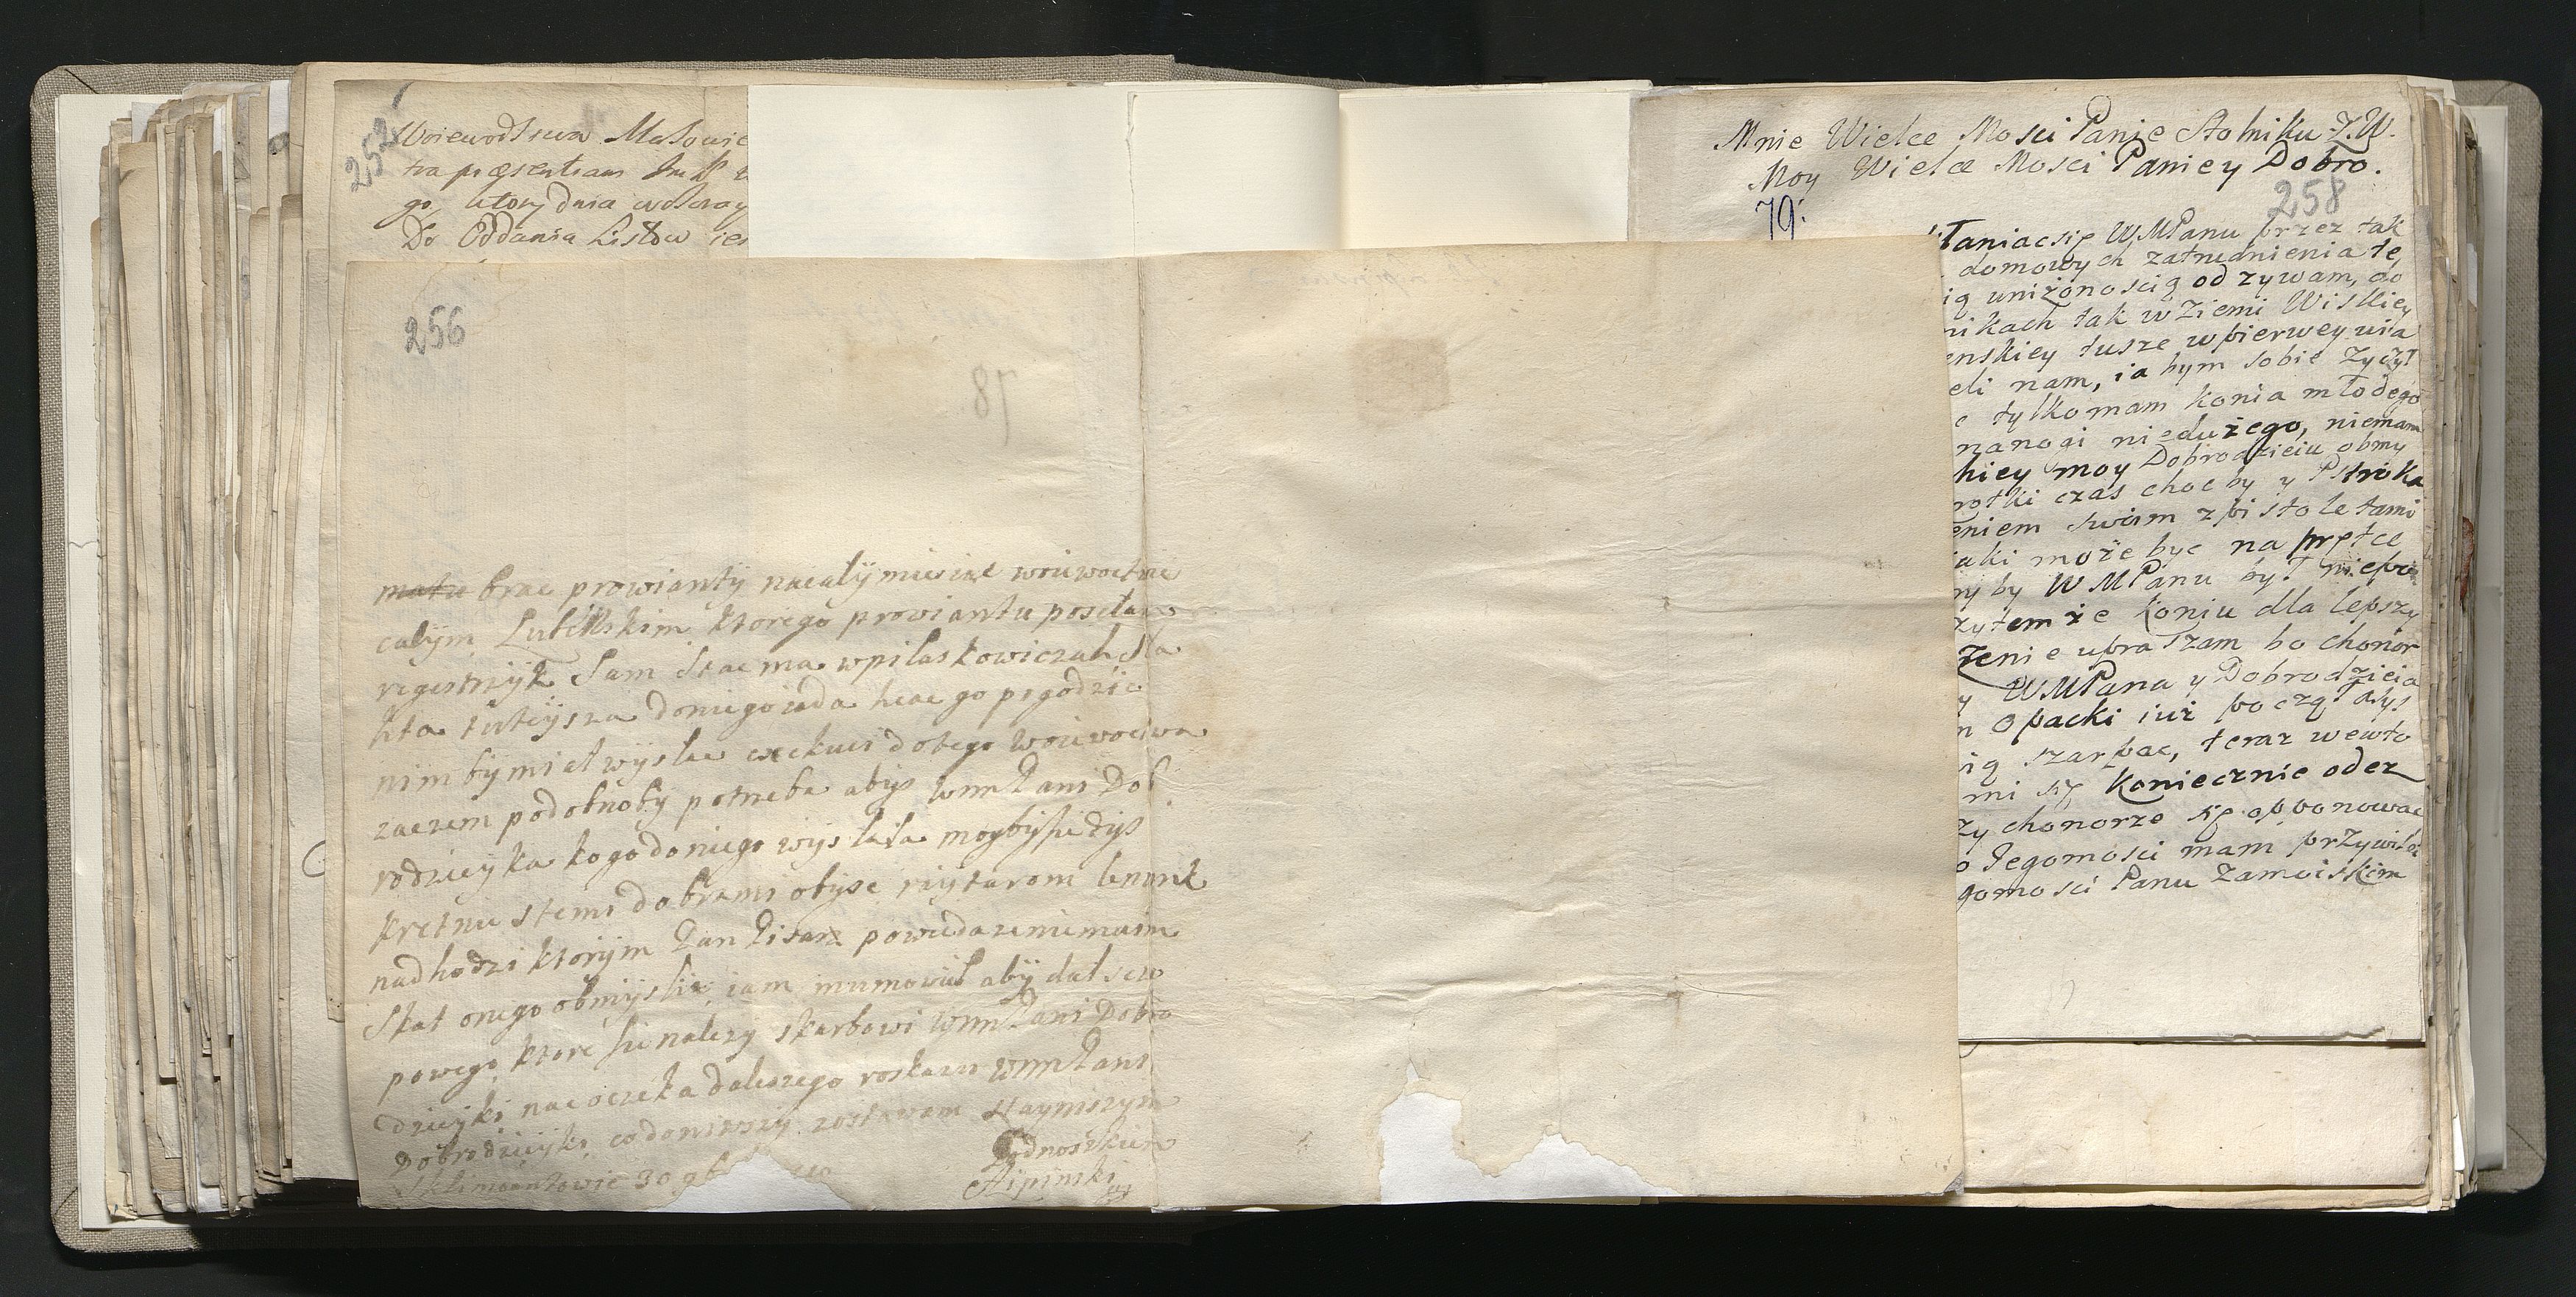 252
Woiewodstwa Mazowie
tra præsentiam Im P
go, ktory dnia wczoray
Do Oddania Listow ie
256
78
matu brac prowianty nacalÿ miesiac woiwoctwie
całÿm Lubelskim ktorego prowiantu posełam
regestrzÿk Sam stac ma wpilaskowiczah
hta tuteÿsza doniego iada hcac go pogodzic
nim bÿ miał wysłac exekuci dotego woiewoctwa
zaczem podobnobÿ potrzeba abÿs WmPani Dob
rodzieÿka kogo doniego wÿsłała mogbÿ
kretnie stemi dobrami obÿsc
nadhodzi ktorÿm Pan Pisarz powieda ze niemaim
skąt onego obmÿslic iam mu mowił abÿ dał
powego ktore sie nalezy skarbowi WmPani Dobro
dzieÿki na co czeka dalszego roskazu WmPani
Dobrodzieÿki codonioszÿ zostawam naÿniszym
Podnoszkiem
Klimontowie 30
Lipinski
Mnie Wielce Mosci Panie Stolniku Z.W.
Moy Wielce Mosci Paniey Dobro.
79.
258
kłaniac się WMPanu przez tak
domowych zatrudnienia te,
ią uniżonoscią odzywam, do
nikach tak w Ziemi Wiskiey
enskiey tusze w pierwey uia
eli nam, ia bym sobie zyczył
e tylko mam konia młodego
nanogi niedużego, niemam
hiey moy Dobrodzieiu obmy
rotki czas choc by y Pstroka
eniem swoim z pistoletami
iaki może byc na prętce
ry by WMPanu był niepo
zytemże koniu dla lepszy
żenie upraszam bo chonor
y WMPana y Dobrodzieia
n Opacki iuż począł
ią szarpac, teraz wewto
mi się koniecznie odez
zy chonorze się opponowac
o Jegomosci mam przywilei
gomosci Panu Zamoiskim